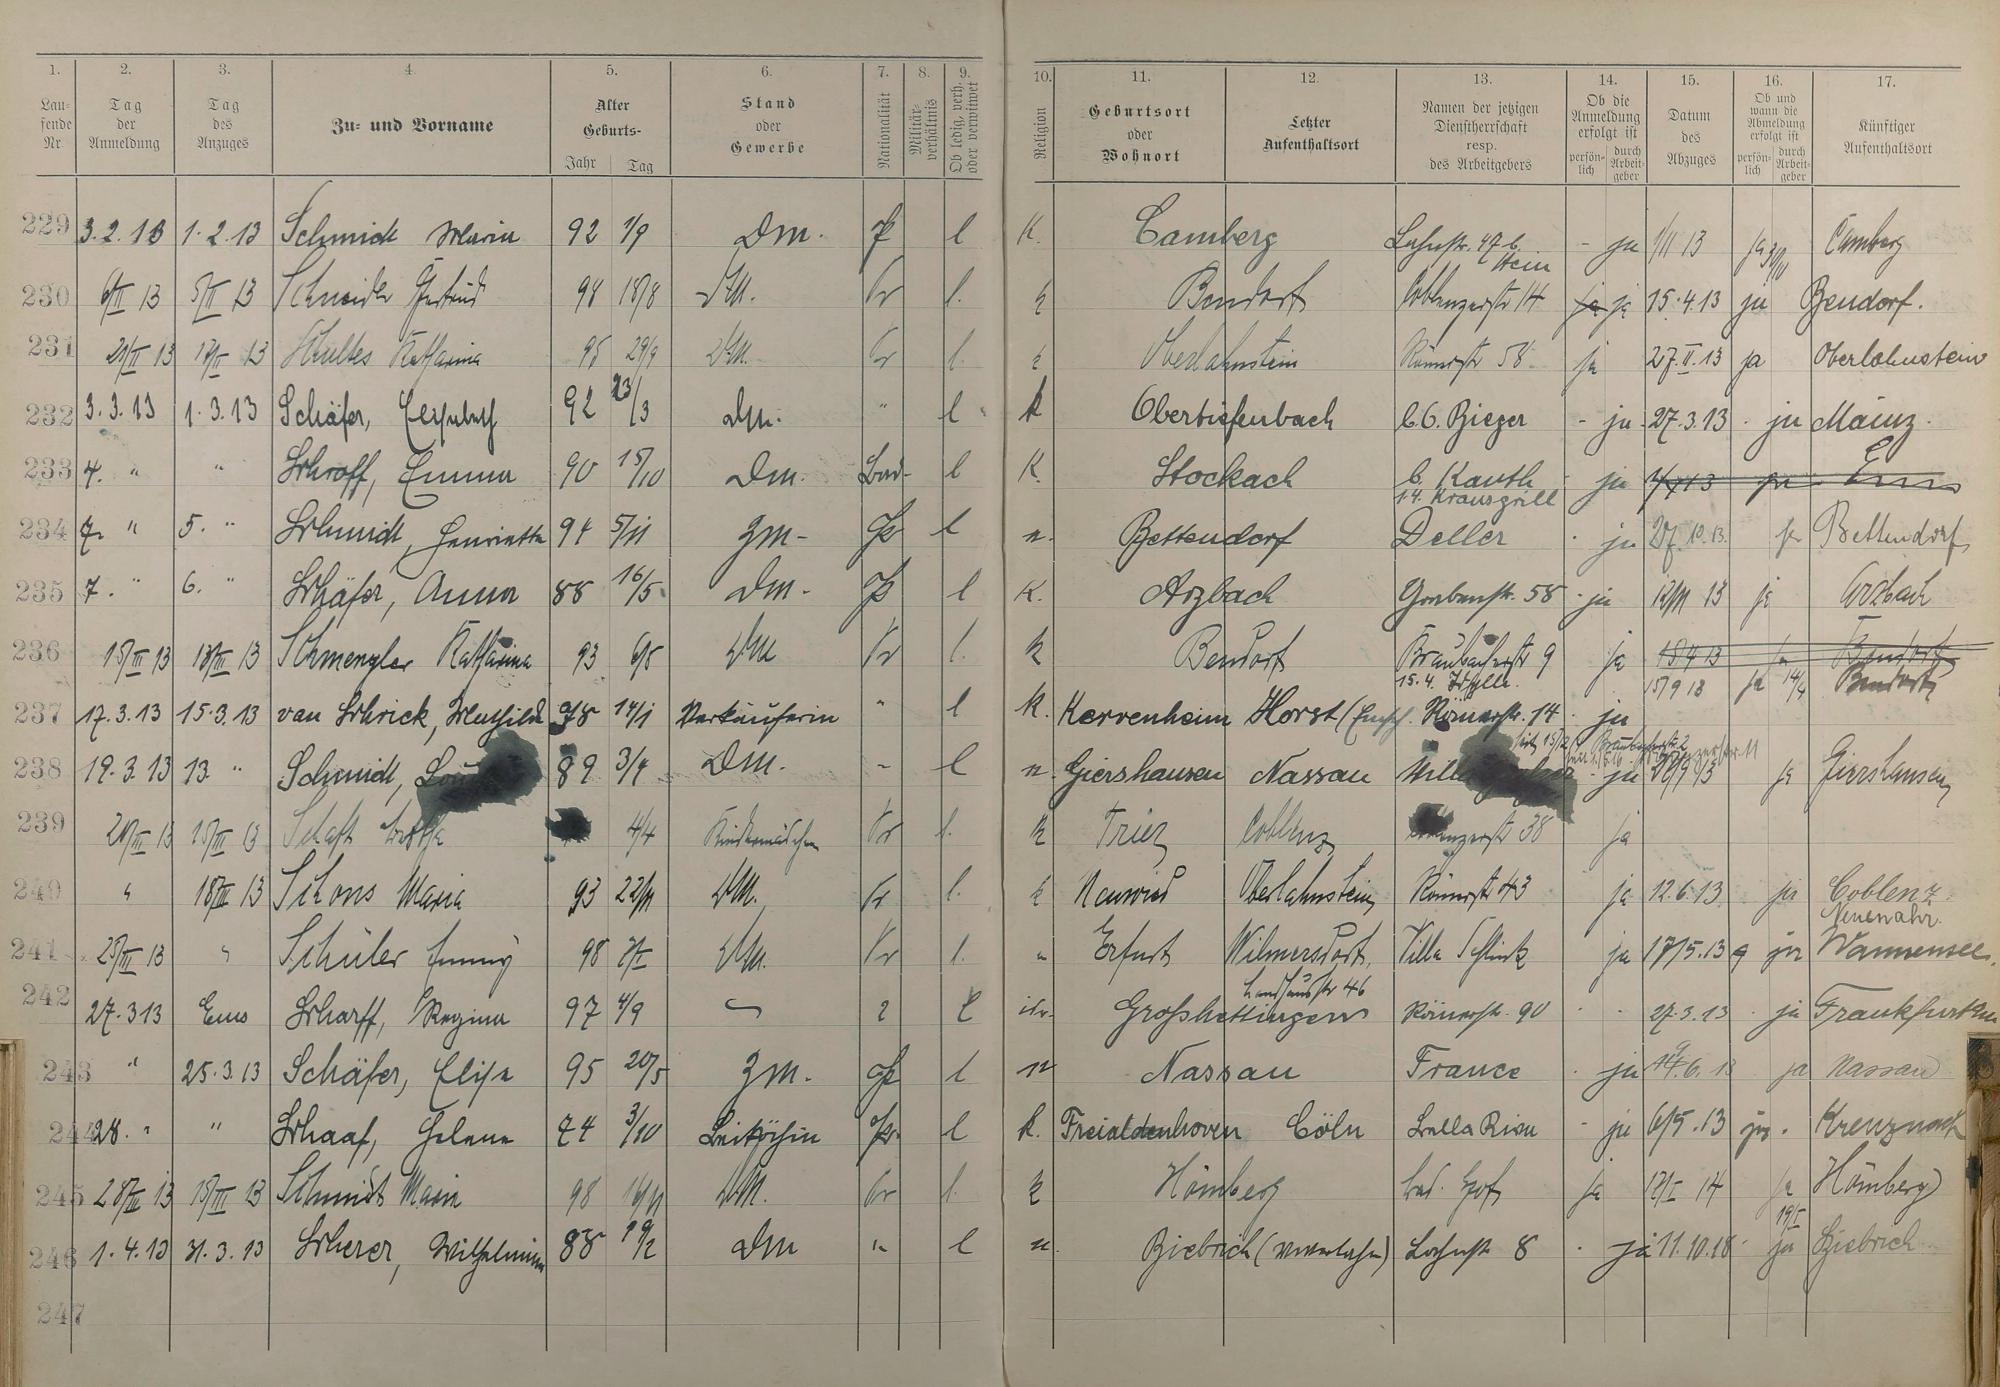 1. 2. 3. 4. 5. 6. 7. 8. 9. 10. 11. 12. 13. 14. 15. 16. 17.
Laufende Nr Tag der Anmeldung Tag des Anzuges Zu- und Vorname Alter Geburts- Jahr Tag Stand oder Gewerbe Nationalität Militärverhältnis Ob ledig, verh. oder verwitwet Religion Geburtsort oder Wohnort Letzter Aufenthaltsort Namen der jetzigen Dienstherrschaft resp. des Arbeitgebers Ob die Anmeldung erfolgt ist persönlich durch Arbeitgeber Datum des Abzuges Ob und wann die Abmeldung erfolgt ist persönlich durch Arbeitgeber Künftiger Aufenthaltsort
229 3.2.13 1.2.13 Schmidt Maria 92 1/9 Dm. P l K. Camberg Lahnstr. 47 b. Stein - ja 1/11 13 ja Camberg
230 6/II 13 5/II 13 Schneider Gertrud 94 18/8 DM. Pr l. k Bendorf Coblenzerstr 14 ja ja 15.4.13 ja Bendorf.
231 13 13 Schultes Katharina 95 29/9 DM. Pr l. k Oberlahnstein Römerstr 58 ja 27.II.13 ja Oberlahnstein
232 3.3.13 1.3.13 Schäfer, Elisabeth 92 23/3 Dm. " l k Obertiefenbach C.C. Rieger - ja - 27.3.13 ja Mainz.
233 4. " " Schroff, Emma 90 15/10 Dm. Bad. l K. Stockach b. Kauth ja 13 ja Ems
14. Krausgrill
234 7. " 5. " Schmidt, Henriette 94 5/11 Zm- Pr l n. Bettendorf Deller ja 27.10.13. ja Bettendorf
235 7. " 6. " Schäfer, Anna 88 16/5. Dm. P l K. Arzbach Grabenstr. 58 - ja 13 ja Arzbach
236 15/III 13 13/III 13 Schmengler Katharina 93 6/8 DM Pr l. k Bendorf Braubacherstr 9 ja 18 4 13 ja Bendorf
15.4. 15/9 13 ja 14/4 Bendorf
237 17.3.13 15.3.13 van Schrick, Mathilde 98 14/1 Verkäuferin " l K. Kervenheim Horst (Emsch. Römerstr. 14 ja
238 19.3.13 13. " Schmidt, 89 3/4 Dm. " l n. Giershausen Nassau Villa ja 13 ja Giershausen
239 13 15/III 13 4/4 Kindermädchen Pr l. k Trier Coblenz 38 ja
240 " 18/III 13 Schons Maria 93 22/11 DM. Pr l. k Neuwied Oberlahnstein Römerstr 43 ja 12.6.13 ja Coblenz
Neuenahr.
241 25/III 13 " Schüler Emmy 98 DM. Pr l. " Erfurt Wilmersdorf, Villa Schlink ja 17/5.13 ja Wannensee.
Landhausstr 46
242 27.3 13 Ems Scharff, Regina 97 4/9 l isr. Grosshettingen Römerstr. 90 27.3.13 ja Frankfurt
243 " 25.3.13 Schäfer, Elise 95 20/5 Zm. P l n Nassau France ja 6.13 ja Nassau
244 28. " " Schaaf, Helene 74 3/10 Beiköchin Pr. l k. Freialdenhoven Cöln Bella Riva - ja 6/5.13 ja. Kreuznach
245 28/III 13 15/III 13 Schmidt Maria 98 DM. Pr l. k Hömberg ja 14 ja Hömberg
246 1.4.13 31.3.13 Scherer, Wilhelmine 88 19/2 Dm " l n. Biebrich Lahnstr 8 ja 11.10.18 ja Biebrich
247